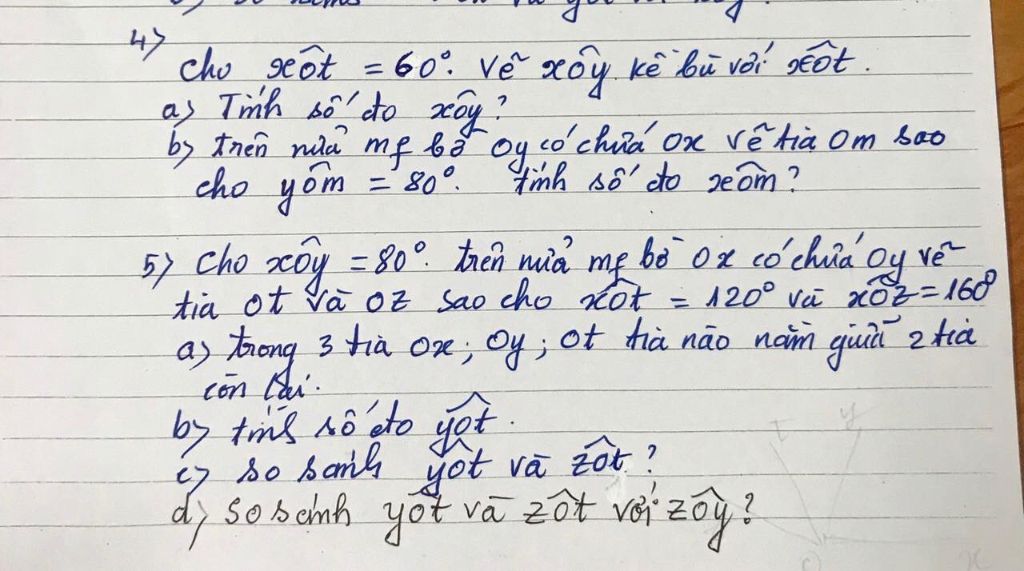 4)
Cho xôt = 60°. Vẽ xôy kề bù với xôt.
a) Tính số đo xôy?
b) trên nửa mf bờ Oy có chứa Ox vẽ tia Om sao
cho yôm = 80°. tính số đo xôm?
5) Cho xôy = 80°. trên nửa mf bờ Ox có chứa Oy vẽ
tia Ot và Oz sao cho xôt = 120° và xôz = 160°
a) trong 3 tia Ox; Oy; Ot tia nào nằm giữa 2 tia
còn lại.
b) tính số đo yôt.
c) so sánh yôt và zôt?
d) so sánh yôt và zôt với zôy?
t y
O x